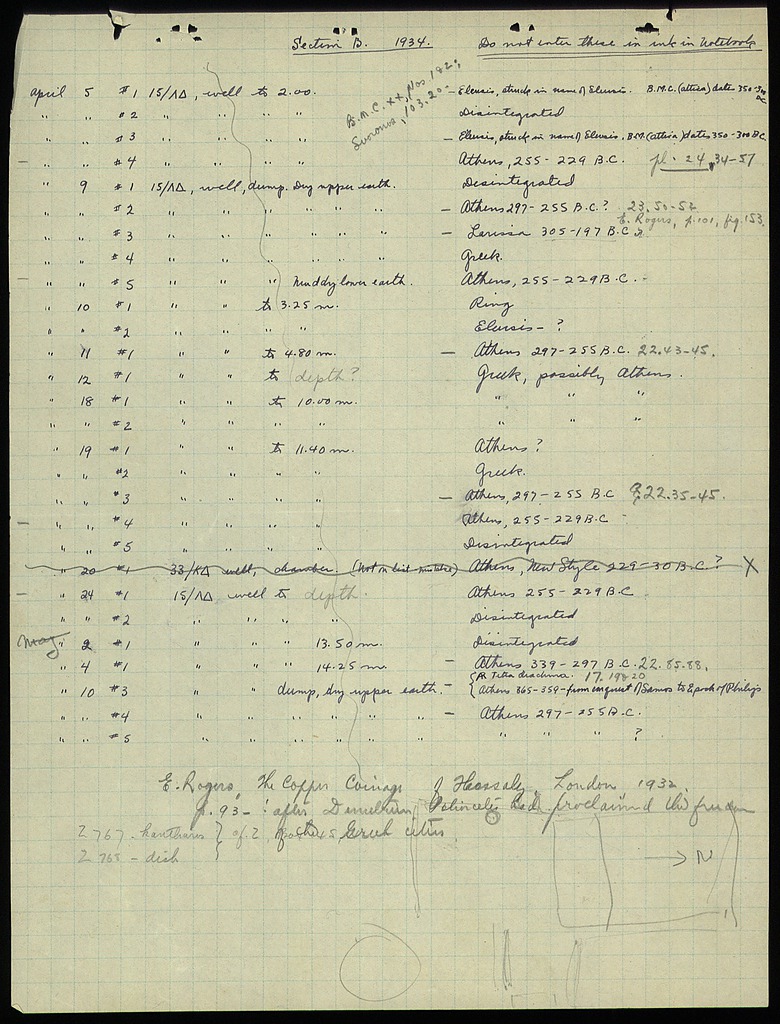 Section B. 1934. Do not enter these in ink in Notebook
B.M.C. xx, Nos 1 & 2;
Svoronos, 103.20-
April 5 #1 15/ΛΔ, well to 2.00. - Eleusis, struck in name of Eleusis. B.M.C. (Attica) dates 350-300 BC
" " #2 " " " " Disintegrated
" " #3 " " " " - Eleusis, struck in name of Eleusis. B.M. (Attica) dates 350-300 B.C
- " " #4 " " " " Athens, 255-229 B.C. pl. 24, 34-57
" 9 #1 15/ΛΔ, well, dump. Dry upper earth. Disintegrated
" " #2 " " " " " - Athens 297-255 B.C.? 23.50-52
E. Rogers, p.101, fig. 153.
" " #3 " " " " " - Larissa 305-197 B.C.
" " #4 " " " " " Greek.
- " " #5 " " Muddy lower earth. Athens, 255-229 B.C. -
" 10 #1 " " to 3.25 m. Ring
" " #2 " " " " Eleusis - ?
" 11 #1 " " to 4.80 m. - Athens 297-255 B.C. 22.43-45.
" 12 #1 " " to depth? Greek, possibly Athens.
" 18 #1 " " to 10.00 m. " " "
" " #2 " " " " " "
" 19 #1 " " to 11.40 m. Athens?
" " #2 " " " " Greek.
" " #3 " " " " - Athens, 297-255 B.C 22.35-45.
- " " #4 " " " " Athens, 255-229 B.C -
" " #5 " " " " Disintegrated
" 20 #1 33/ΚΔ well, chamber. (Not in list) Athens, New Style 229-30 B.C? X
- " 24 #1 15/ΛΔ well to depth. Athens 255-229 B.C
" " #2 " " " " Disintegrated
May 2 #1 " " 13.50 m. Disintegrated
" 4 #1 " " 14.25 m. - Athens 339-297 B.C. 22.85.88.
AR Tetradrachma. 17. 19 & 20
" 10 #3 " " dump, dry upper earth. - Athens 365-359 - from conquest of Samos to Epoch of Philip
" " #4 " " " " " " - Athens 297-255 B.C.
" " #5 " " " " " " " " " ?
E. Rogers, The Copper Coinage of Thessaly, London 1932.
p. 93 - : after Demetrius Poliorcetes had proclaimed the freedom
of the Greek cities
Z 767 - kantharos
Z 765 - dish
→ N